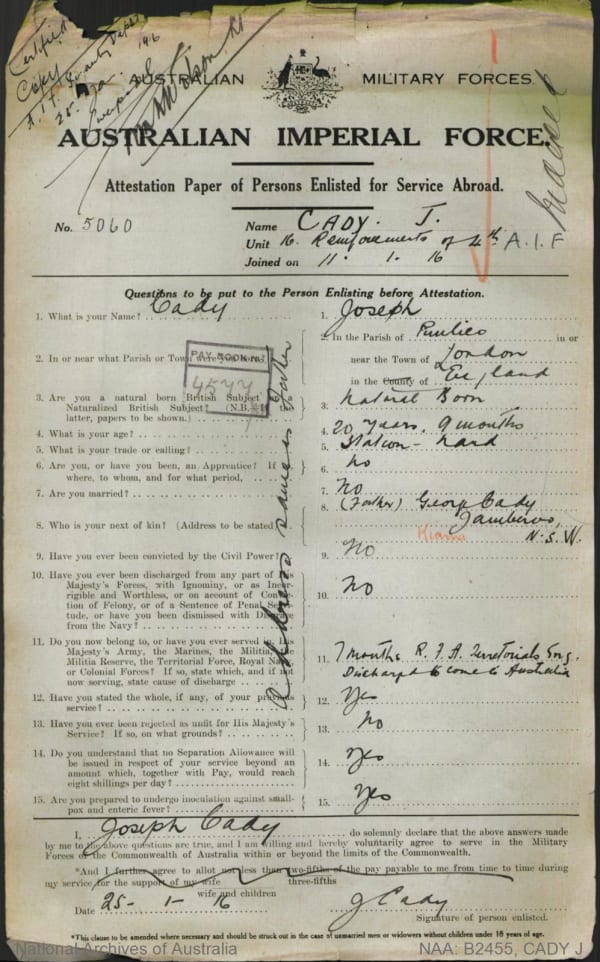 Certified
Copy
A.I.F.
25
AUSTRALIAN MILITARY FORCES.
AUSTRALIAN IMPERIAL FORCE.
Attestation Paper of Persons Enlisted for Service Abroad.
No. 5060
Name CADY. J.
Unit 16. Reinforcements of 4th A.I.F
Joined on 11. 1. 16
Questions to be put to the Person Enlisting before Attestation.
1. What is your Name? Cady
1. Joseph
2. In or near what Parish or Town were you born?
2. In the Parish of Pimlico in or
near the Town of London
in the County of England
PAY BOOK No.
4577
3. Are you a natural born British Subject or a
Naturalized British Subject? (N.B.—If the
latter, papers to be shown.)
3. Natural Born
4. What is your age?
4. 20 Years, 9 months
5. What is your trade or calling?
5. Station-hand
6. Are you, or have you been, an Apprentice? If
where, to whom, and for what period,
6. No
7. Are you married?
7. No
8. Who is your next of kin? (Address to be stated)
8. (Father) George Cady
Jamberoo,
Kiama N.S.W.
Address same as Father
9. Have you ever been convicted by the Civil Power?
9. No
10. Have you ever been discharged from any part of His
Majesty's Forces, with Ignominy, or as Incor-
rigible and Worthless, or on account of Convic-
tion of Felony, or of a Sentence of Penal Servi-
tude, or have you been dismissed with Disgrace
from the Navy?
10. No
11. Do you now belong to, or have you ever served in, His
Majesty's Army, the Marines, the Militia, the
Militia Reserve, the Territorial Force, Royal Navy
or Colonial Forces? If so, state which, and if not
now serving, state cause of discharge
11. 7 months R.F.A. Territorials Eng.
Discharged to come to Australia
12. Have you stated the whole, if any, of your previous
service?
12. Yes
13. Have you ever been rejected as unfit for His Majesty's
Service? If so, on what grounds?
13. No
14. Do you understand that no Separation Allowance will
be issued in respect of your service beyond an
amount which, together with Pay, would reach
eight shillings per day?
14. Yes
15. Are you prepared to undergo inoculation against small-
pox and enteric fever?
15. Yes
I, Joseph Cady do solemnly declare that the above answers made
by me to the above questions are true, and I am willing and hereby voluntarily agree to serve in the Military
Forces of the Commonwealth of Australia within or beyond the limits of the Commonwealth.
*And I further agree to allot not less than two-fifths of the pay payable to me from time to time during
three-fifths
my service for the support of my wife
wife and children
Date 25- 1- 16
J Cady
Signature of person enlisted.
*This clause to be amended where necessary and should be struck out in the case of unmarried men or widowers without children under 18 years of age.
National Archives of Australia
NAA: B2455, CADY J